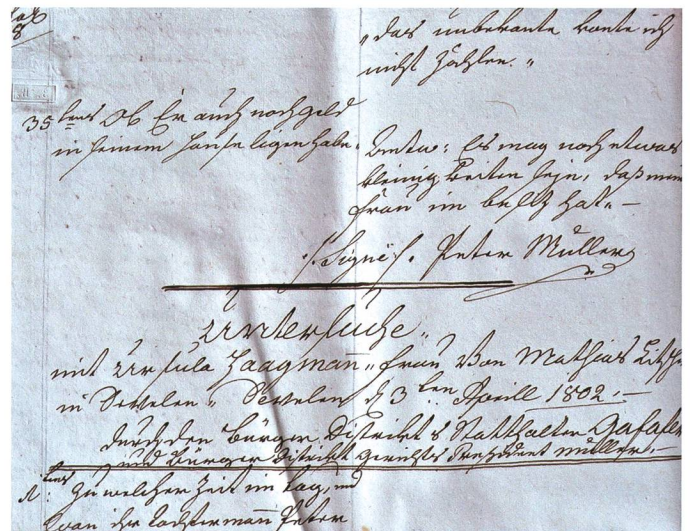 "das unbekante konte ich
nicht zehlen."
35tens Ob Er auch noch geld
in seinem Hause ligen habe.
Antw: Es mag noch etwas
kleinigkeiten seje, daß mein
frau im besitz hat.
/:Signé/: Peter Müller
Untersuche
mit Ursula Haagmañ, frau von Mathias
in Sevelen. Sevelen d 3ten Aprill 1802.
durch den Bürger Distrikt Statthalter
und Bürger Distrikt Gerichts President Müller.
zu welcher Zeit im tag, und
wan ihr tochtermañ Peter